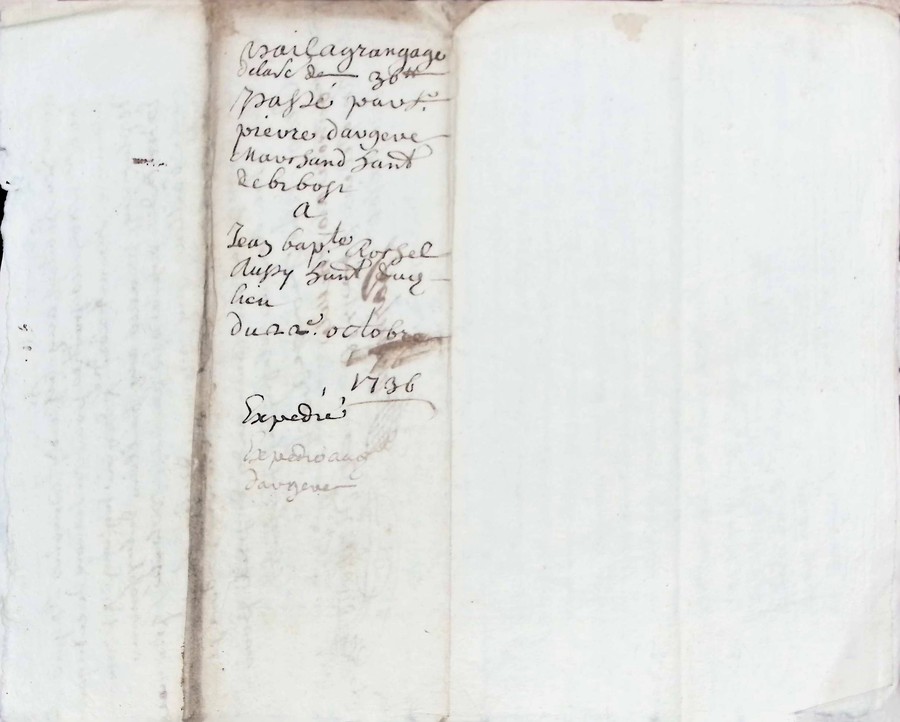 Bail a grangage
de la Sc de 36tt
Passé par Sr.
pierre daugeve
Marchand hant
a
Jean bapte. Rochel
Aussy hant dud
lieu
Du 22e. octobre
1736
Expedié
Expedié aud
daugeve